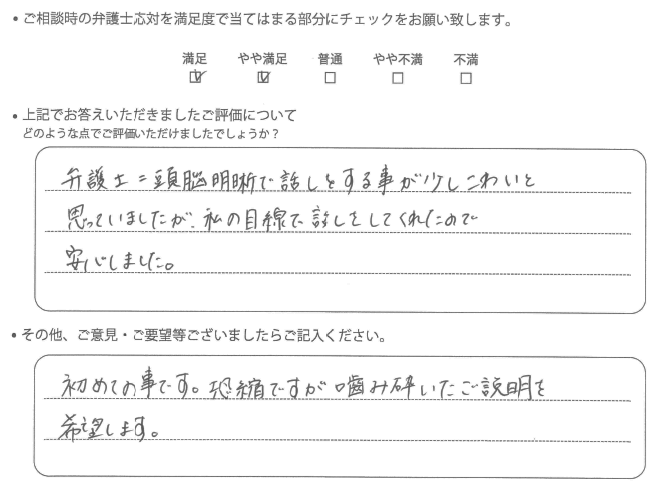 • ご相談時の弁護士応対を満足度で当てはまる部分にチェックをお願い致します。
満足 やや満足 普通 やや不満 不満
☑ ☑ □ □ □
• 上記でお答えいただきましたご評価について
どのような点でご評価いただけましたでしょうか?
弁護士=頭脳明晰で話しをする事が少しこわいと
思っていましたが、私の目線で話しをしてくれたので
安心しました。
• その他、ご意見・ご要望等ございましたらご記入ください。
初めての事です。恐縮ですが噛み砕いたご説明を
希望します。